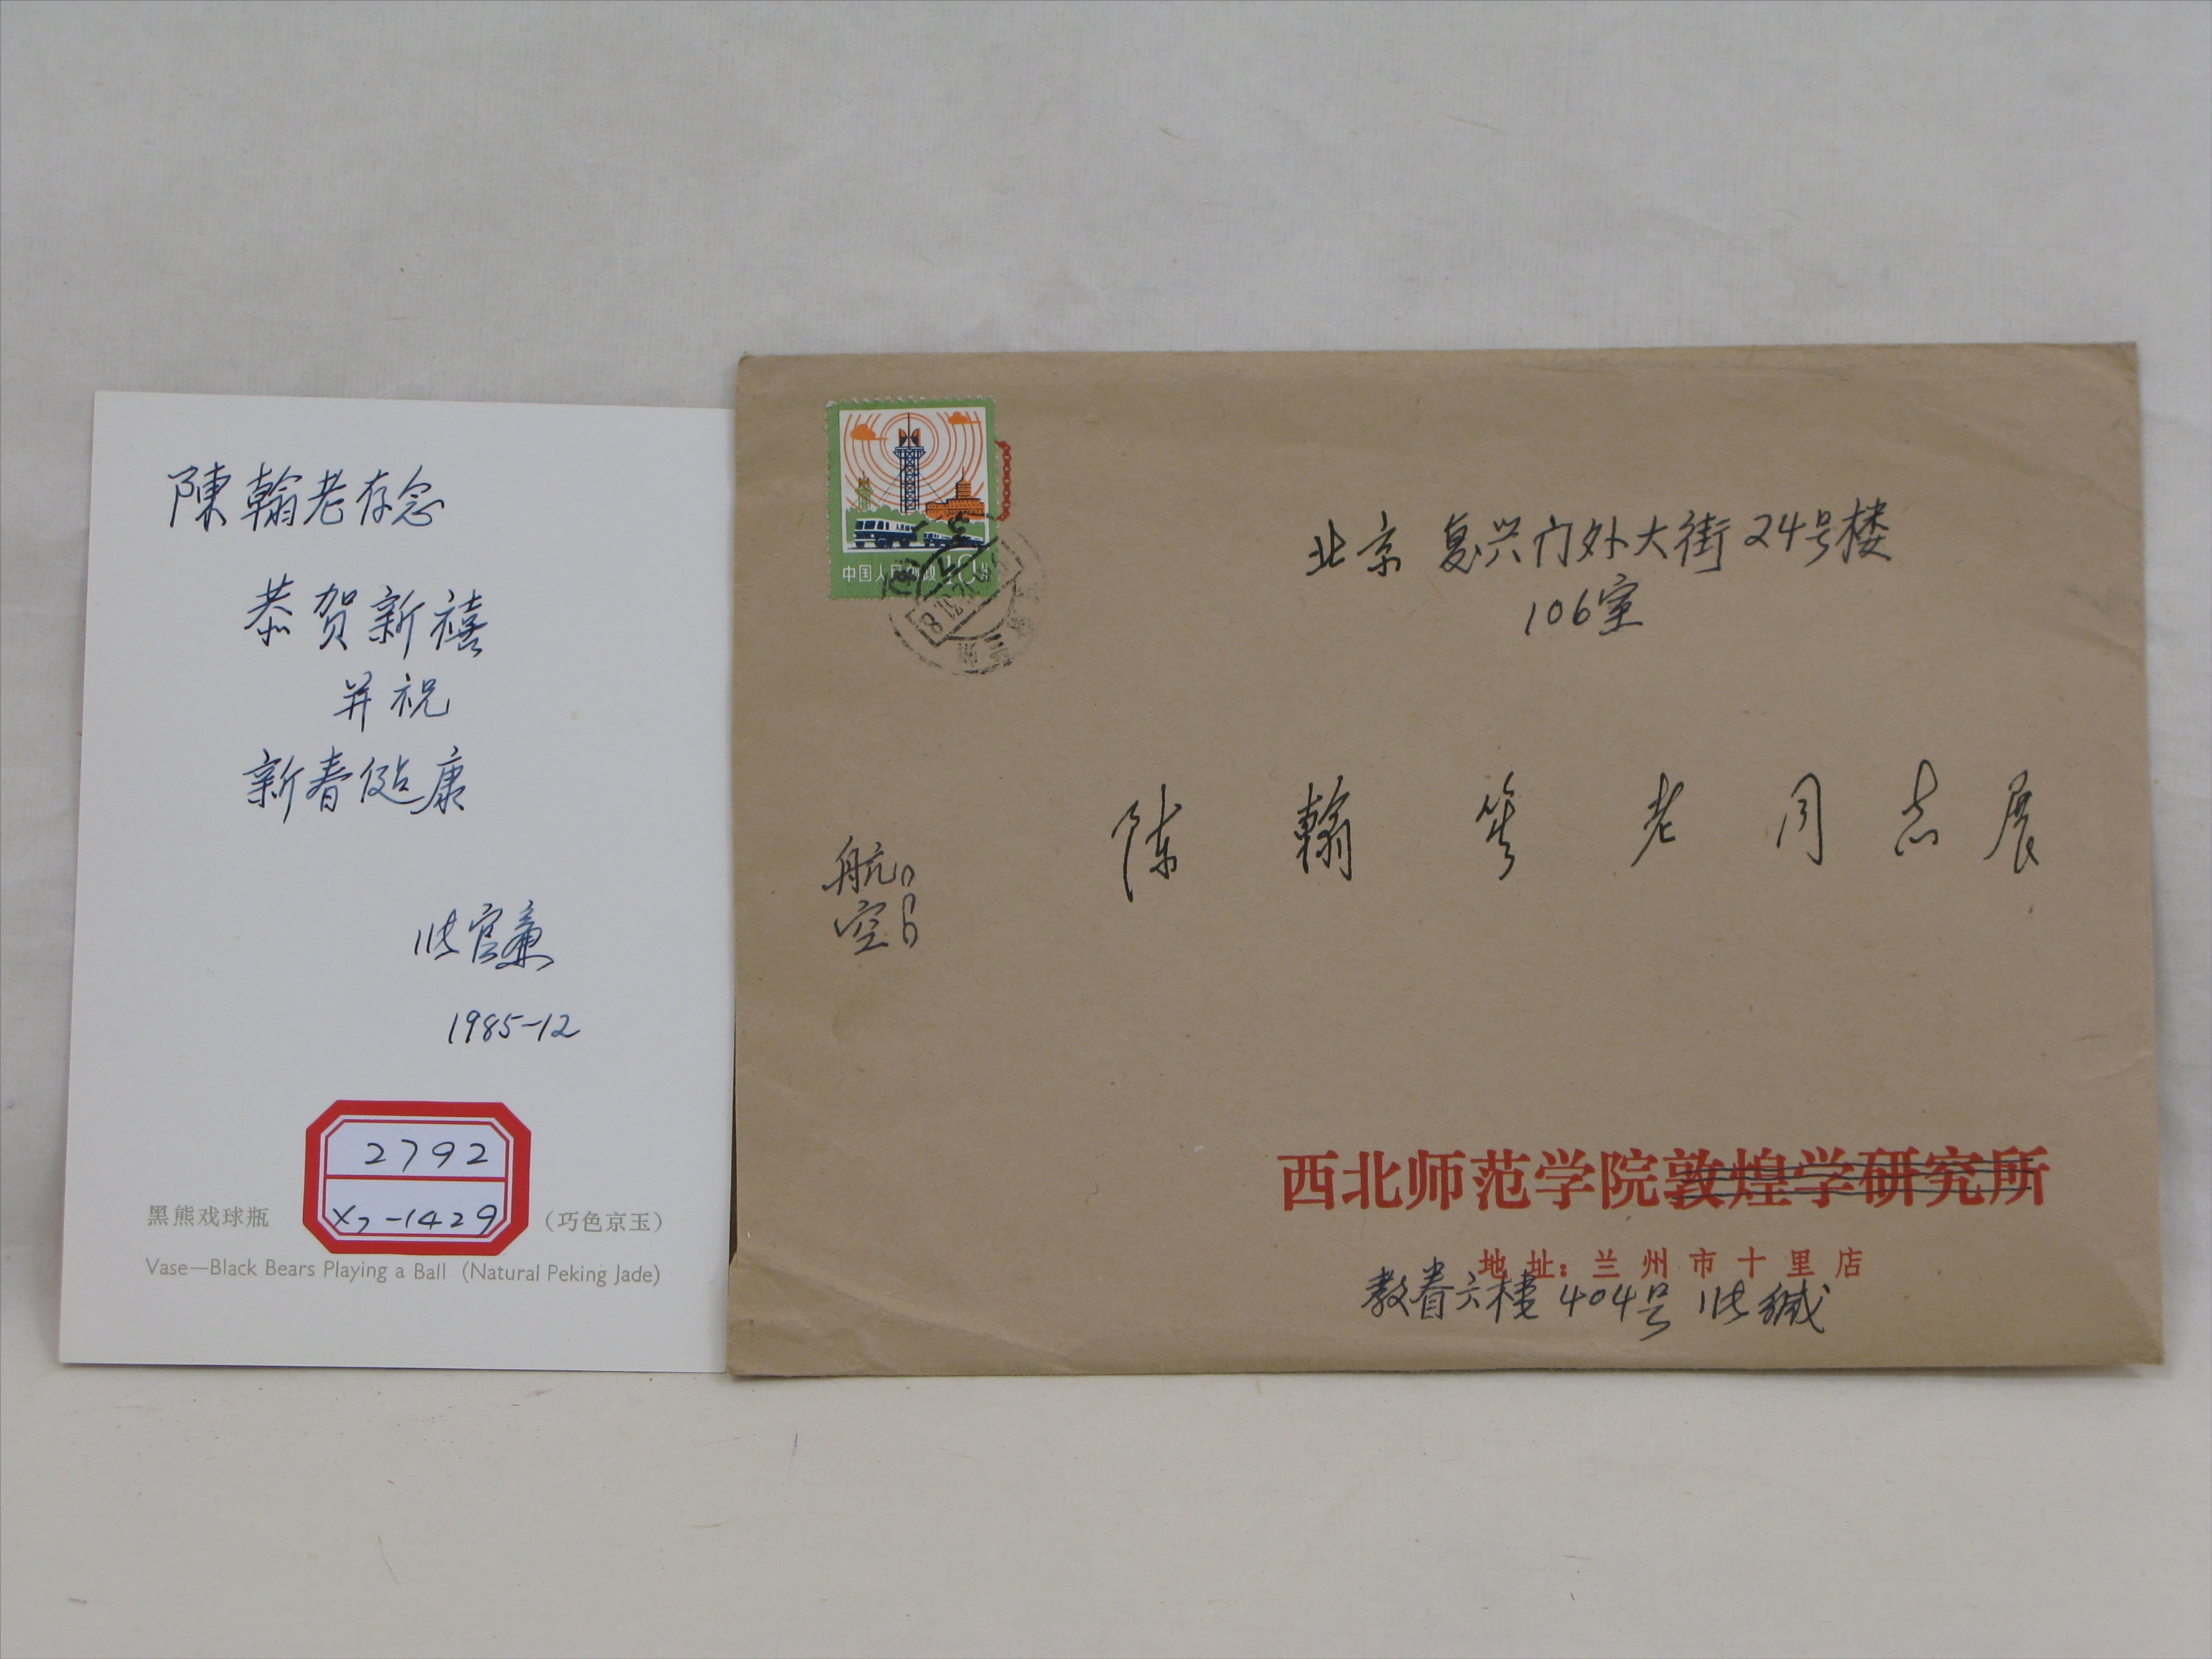 陳翰老存念
恭贺新禧
并祝
新春健康
1985-12
2792
X7-1429
黑熊戏球瓶
(巧色京玉)
Vase—Black Bears Playing a Ball (Natural Peking Jade)
中国人民邮政 10分
北京 复兴门外大街24号楼
106室
陈翰笙老同志展
航空
西北师范学院敦煌学研究所
地址:兰州市十里店
教眷六楼404号
缄